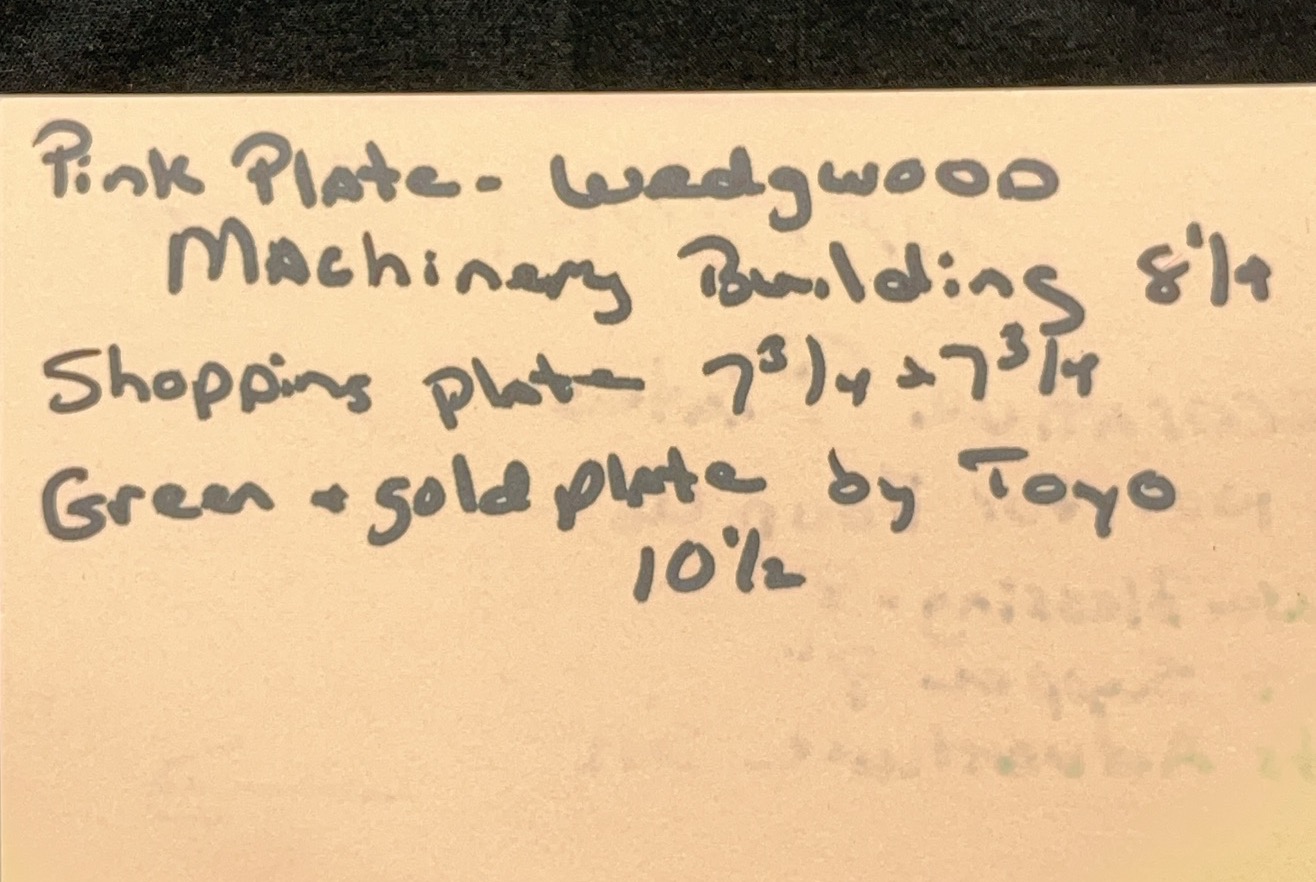 Pink Plate - Wedgwood
Machinery Building 8 1/4
Shopping plate 7 3/4 x 7 3/4
Green + gold plate by Toyo
10 1/2